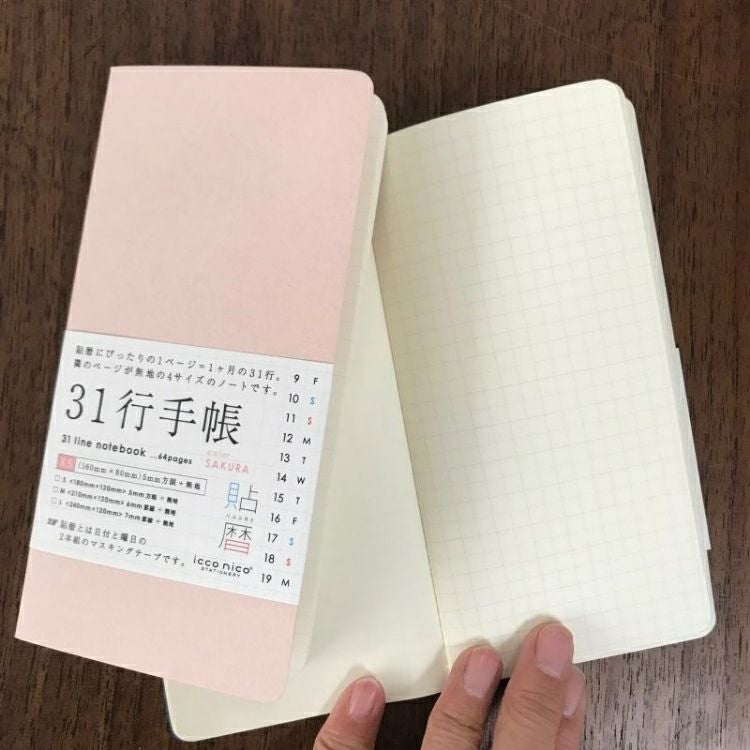 貼暦にぴったりの1ページ=1ヶ月の31行。
隣のページが無地の4サイズのノートです。
31行手帳
31 line notebook ...64pages
color
SAKURA
X.S (160mm×80mm)5mm方眼+無地
□ S <180mm×120mm> 5mm方眼 + 無地
□ M <210mm×120mm> 6mm罫線 + 無地
□ L <240mm×120mm> 7mm罫線 + 無地
貼暦とは日付と曜日の
2本組のマスキングテープです。
貼
HAGOYO
暦
icco nico®
STATIONERY
9 F
10 S
11 S
12 M
13 T
14 W
15 T
16 F
17 S
18 S
19 M